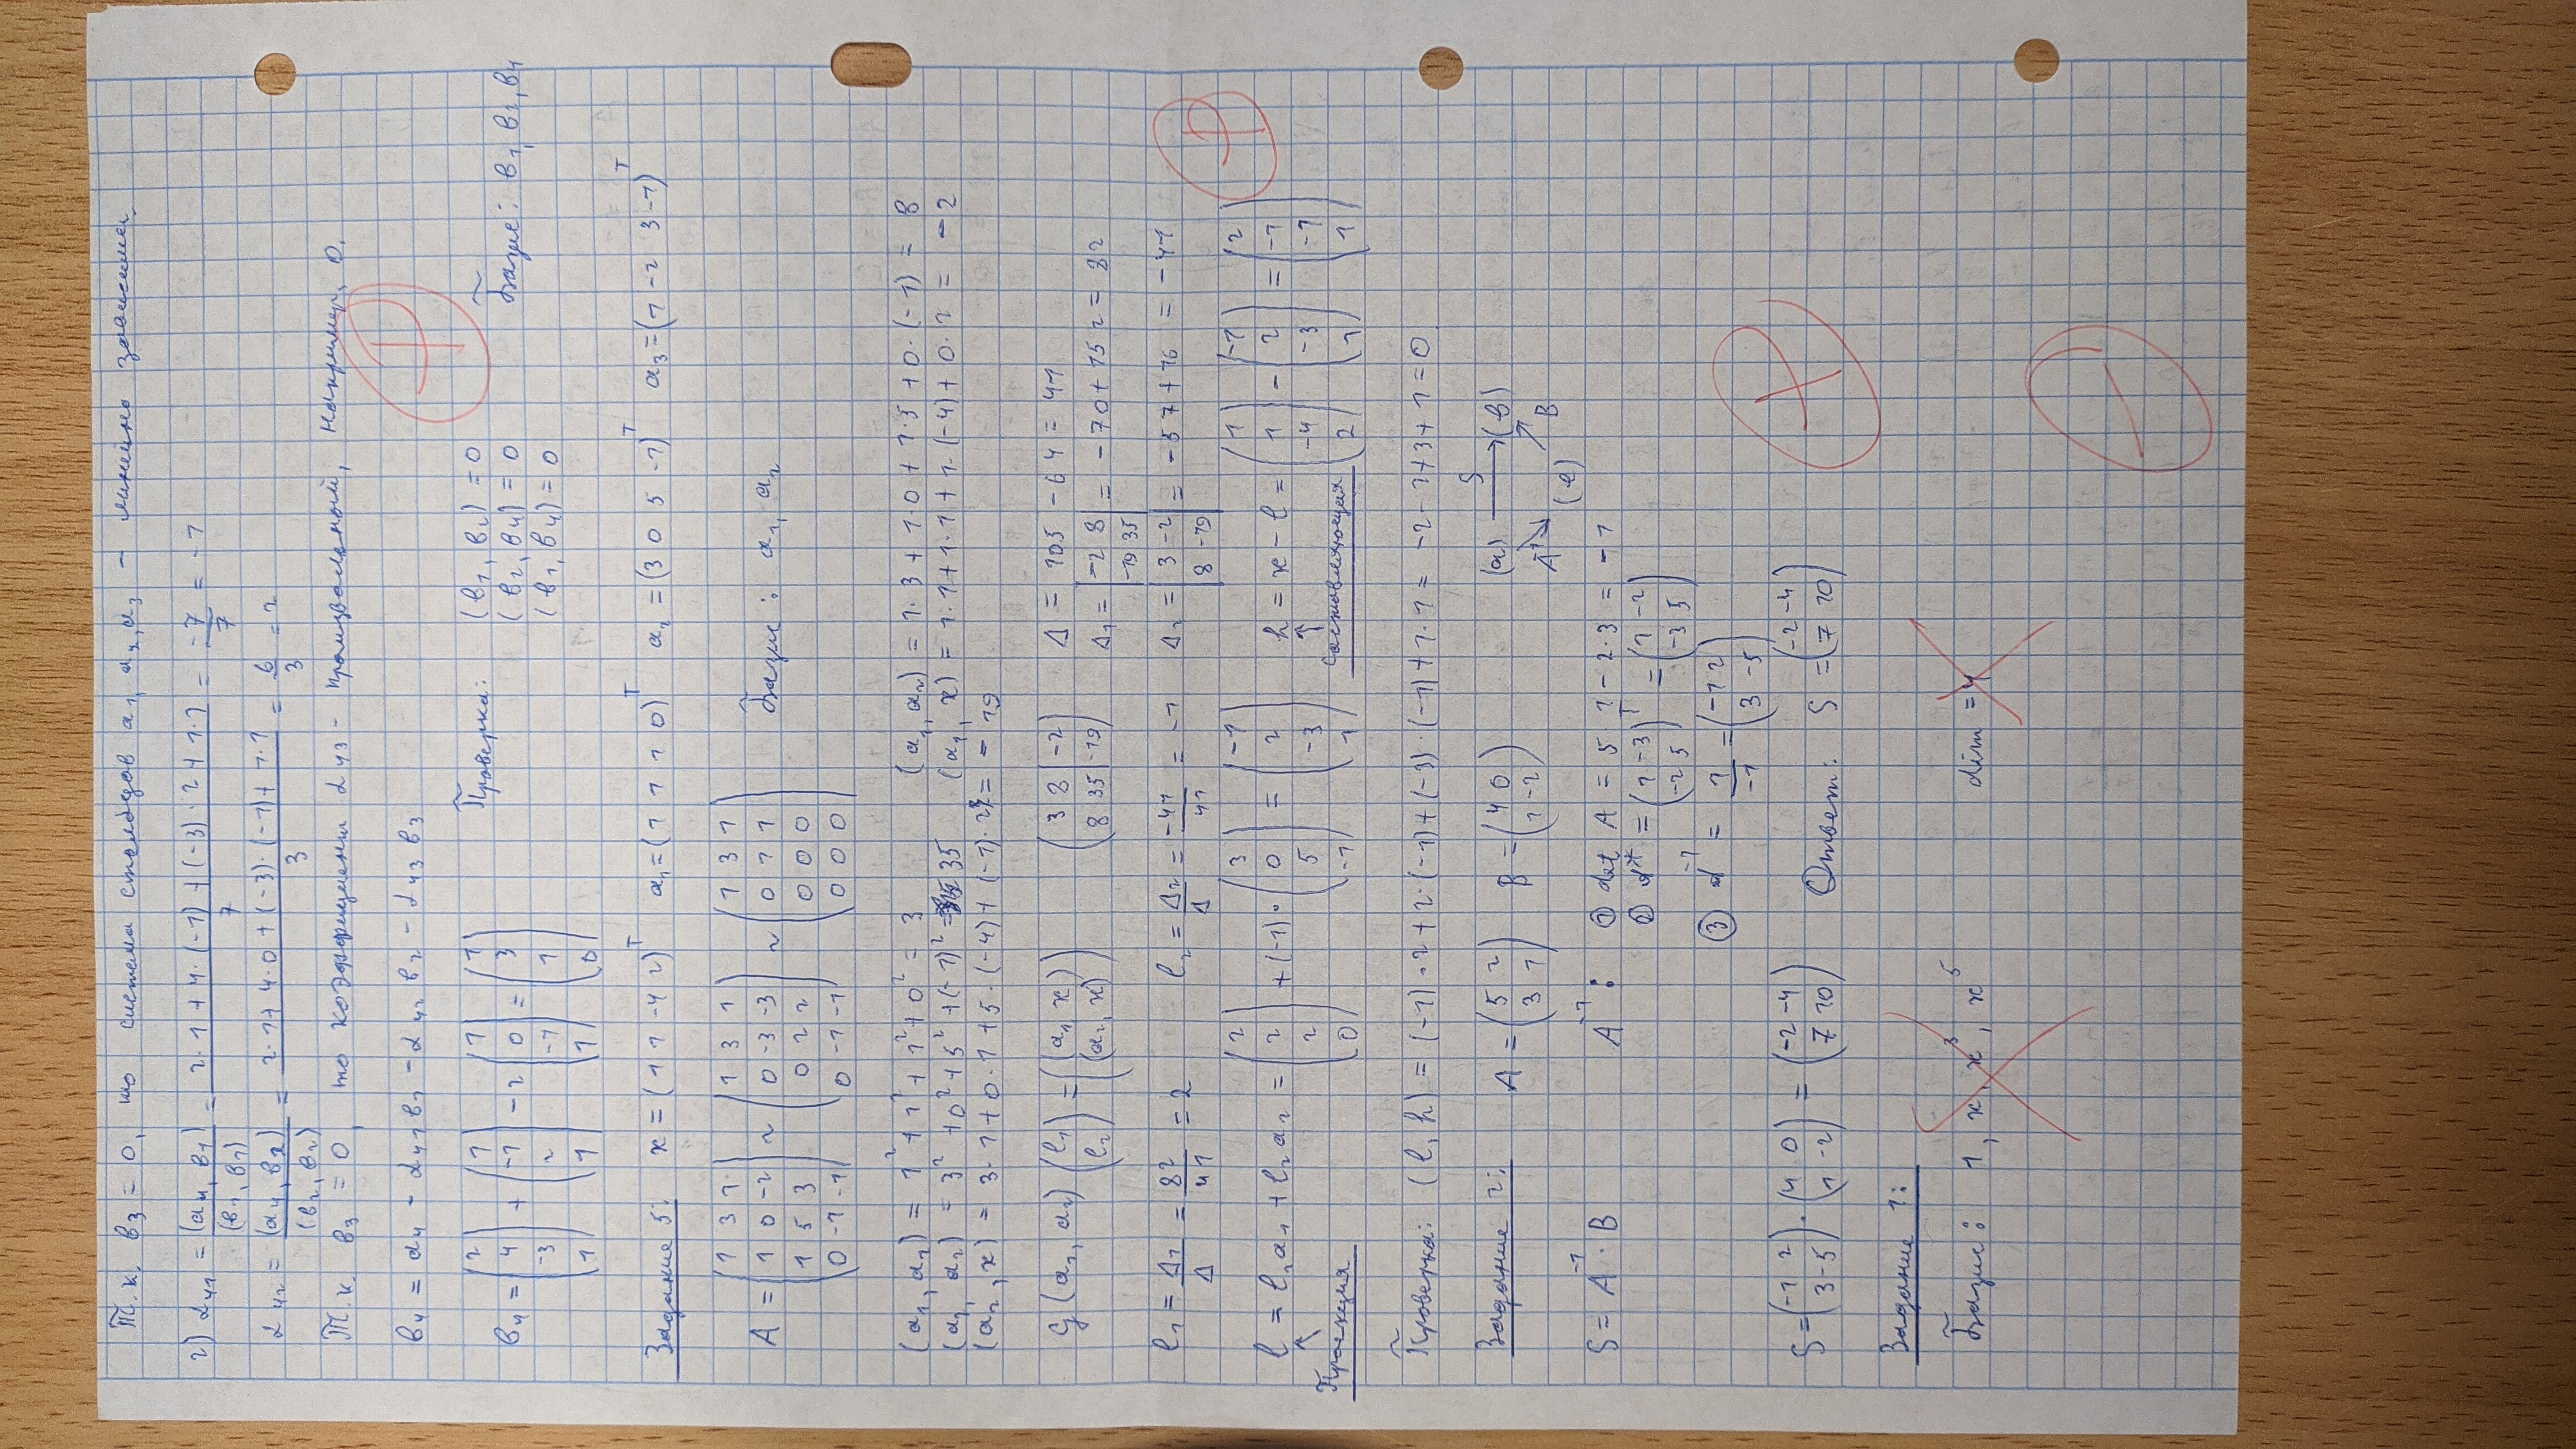 Т.к. b₃ = 0, то система столбцов a₁, a₂, a₃ – линейно зависима.
2) α₄₁ = (a₄, b₁)/(b₁, b₁) = (2·1 + 4·(-1) + (-3)·2 + 1·1)/7 = -7/7 = -1
α₄₂ = (a₄, b₂)/(b₂, b₂) = (2·1 + 4·0 + (-3)·(-1) + 1·1)/3 = 6/3 = 2
Т.к. b₃ = 0, то коэффициент α₄₃ – произвольный, например, 0.
b₄ = a₄ - α₄₁b₁ - α₄₂b₂ - α₄₃b₃
b₄ = (2 4 -3 1) + (1 -1 2 1) - 2 (1 0 -1 1) = (1 3 1 0)
Проверка: (b₁, b₂) = 0
(b₂, b₄) = 0
(b₁, b₄) = 0
Базис: b₁, b₂, b₄
Задание 5: x = (1 1 -4 2)ᵀ a₁ = (1 1 1 0)ᵀ a₂ = (3 0 5 -1)ᵀ a₃ = (1 -2 3 -1)ᵀ
A = (1 3 1; 1 0 -2; 1 5 3; 0 -1 -1) ~ (1 3 1; 0 -3 -3; 0 2 2; 0 -1 -1) ~ (1 3 1; 0 1 1; 0 0 0; 0 0 0) Базис: a₁, a₂
(a₁, a₁) = 1² + 1² + 1² + 0² = 3 (a₁, a₂) = 1·3 + 1·0 + 1·5 + 0·(-1) = 8
(a₂, a₂) = 3² + 0² + 5² + (-1)² = 35 (a₁, x) = 1·1 + 1·1 + 1·(-4) + 0·2 = -2
(a₂, x) = 3·1 + 0·1 + 5·(-4) + (-1)·2 = -19
G(a₁, a₂) (l₁; l₂) = ((a₁, x); (a₂, x)) (3 8 | -2; 8 35 | -19) Δ = 105 - 64 = 41
Δ₁ = |-2 8; -19 35| = -70 + 152 = 82
l₁ = Δ₁/Δ = 82/41 = 2 l₂ = Δ₂/Δ = -41/41 = -1 Δ₂ = |3 -2; 8 -19| = -57 + 16 = -41
l = l₁a₁ + l₂a₂ = (2 2 2 0) + (-1)·(3 0 5 -1) = (-1 2 -3 1) h = x - l = (1 1 -4 2) - (-1 2 -3 1) = (2 -1 -1 1)
Проекция составляющая
Проверка: (l, h) = (-1)·2 + 2·(-1) + (-3)·(-1) + 1·1 = -2 - 2 + 3 + 1 = 0
Задание 2: A = (5 2; 3 1) B = (4 0; 1 -2) (a) S→ (b)
A⁻¹ (e) B
S = A⁻¹·B A⁻¹: ① det A = 5·1 - 2·3 = -1
② A* = (1 -3; -2 5)ᵀ = (1 -2; -3 5)
③ A⁻¹ = 1/-1 = (-1 2; 3 -5)
S = (-1 2; 3 -5)·(4 0; 1 -2) = (-2 -4; 7 10) Ответ: S = (-2 -4; 7 10)
Задание 1:
Базис: 1, x, x³, x⁵ dim = 4